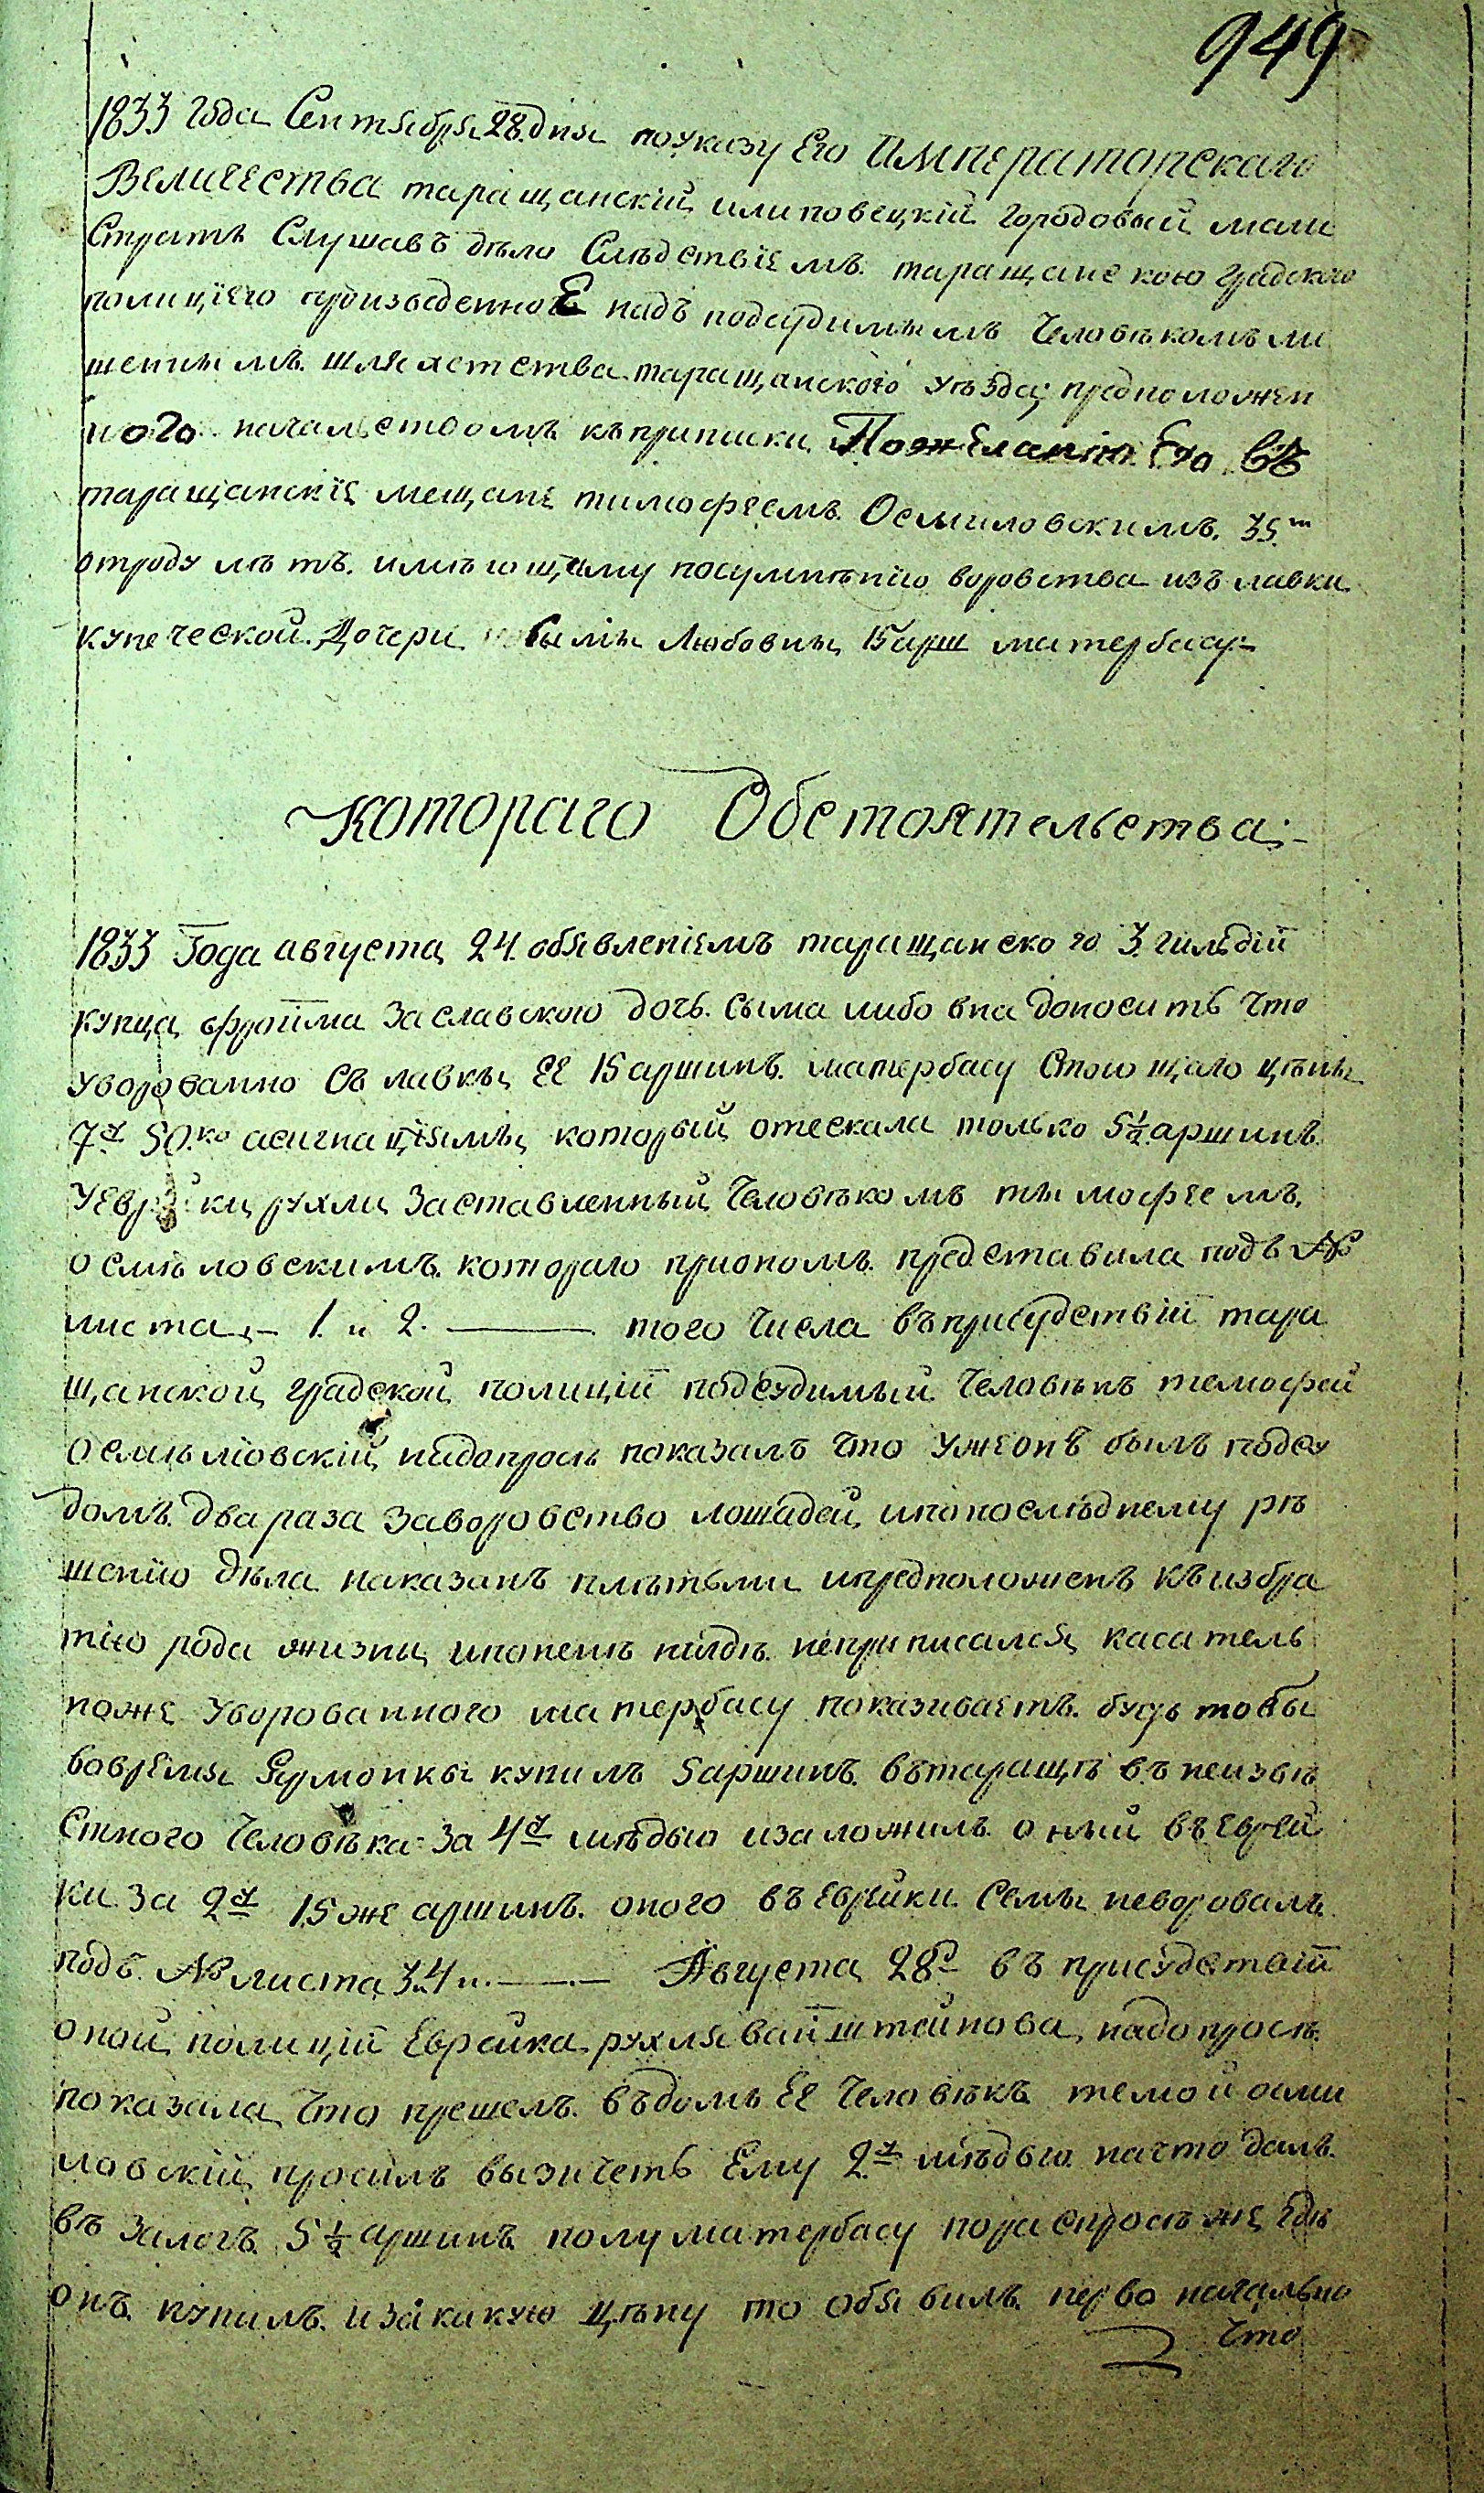 949
1833 года Сентября 28. дня по указу Его Императорскаго
Величества таращанскій и липовецкій городовый маги
Стратъ Слушавъ дѣло Слѣдствіемъ таращанскою градскою
полиціею произведенное надъ подсудимымъ Человѣкомъ ли
шеннымъ шляхетства таращанского уѣзда предположен
ного начальствомъ къ приписки По желанію Его въ
таращанскіе мещане тимофеемъ Осмиловскимъ 35.т
отроду лѣтъ. имѣющему посумнѣнію воровства изъ лавки
купеческой Дочери Сымы Любовны 15 арш матербасу:-
котораго Обстоятельства:-
1833 Года августа 24. обявленіемъ таращанского 3. гильдіи
купца фроима Заславского дочь Сыма либовна доноситъ что
уворованно съ лавкы ее 15 аршинъ матербасу Стоющаго цѣны
7р 50.ко асигнаціямы который отескала только 5½ аршинъ
У Еврейки рухли Заставленный Человѣкомъ тымофеемъ
осмѣловскимъ котораго приэтомъ представила подъ №
листа,- 1. и 2. ——— того Числа въ присудствіи тара
щанской градской полиціи подсудимый Человѣкъ темофей
осмѣловскій надопросѣ показалъ Что уже онъ былъ подсу
домъ два раза За воровство лошадей, и по послѣднему рѣ
шенію дѣла наказанъ плѣтьми и предположенъ къ избра
нію рода жизни и по немъ нигдѣ неприписался, касатель
ноже Уворованного матербасу показиваетъ будьтобы
вовремя Ярмонкы купилъ 5 аршинъ въ таращѣ въ неизвѣ
Стного Человѣка За 4р мѣдью изаложилъ оный въ Еврей
ки За 2р 15 же аршинъ оного въ Еврейки Семы неворовалъ
подъ № листа 3. 4 и. ——— Августа 28го въ присудствіи
оной полиціи Еврейка рухля вайнштейнова надопросѣ
показала Что прешелъ въ домъ Ее Человѣкъ темой осми
ловскій просилъ вызичеть Ему 2р мѣдью на что далъ
въ Залогъ 5½ аршинъ полуматербасу по распросѣ же Где
онъ купилъ и за какую цѣну то обявилъ перво начально
Что